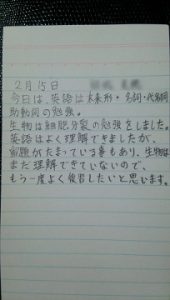 2月15日
今日は、英語は未来形・名詞・代名詞
助動詞の勉強。
生物は細胞分裂の勉強をしました。
英語はよく理解できましたが、
宿題がたまっている事もあり、生物は
まだ理解できていないので、
もう一度よく復習したいと思います。